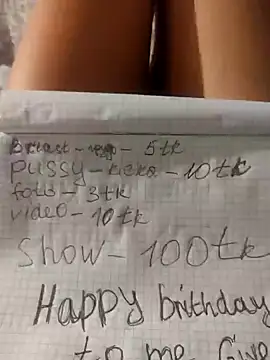 breast - - 5tk
pussy - - 10tk
foto - 3tk
video - 10tk
Show - 100tk
Happy birthday
to me Give